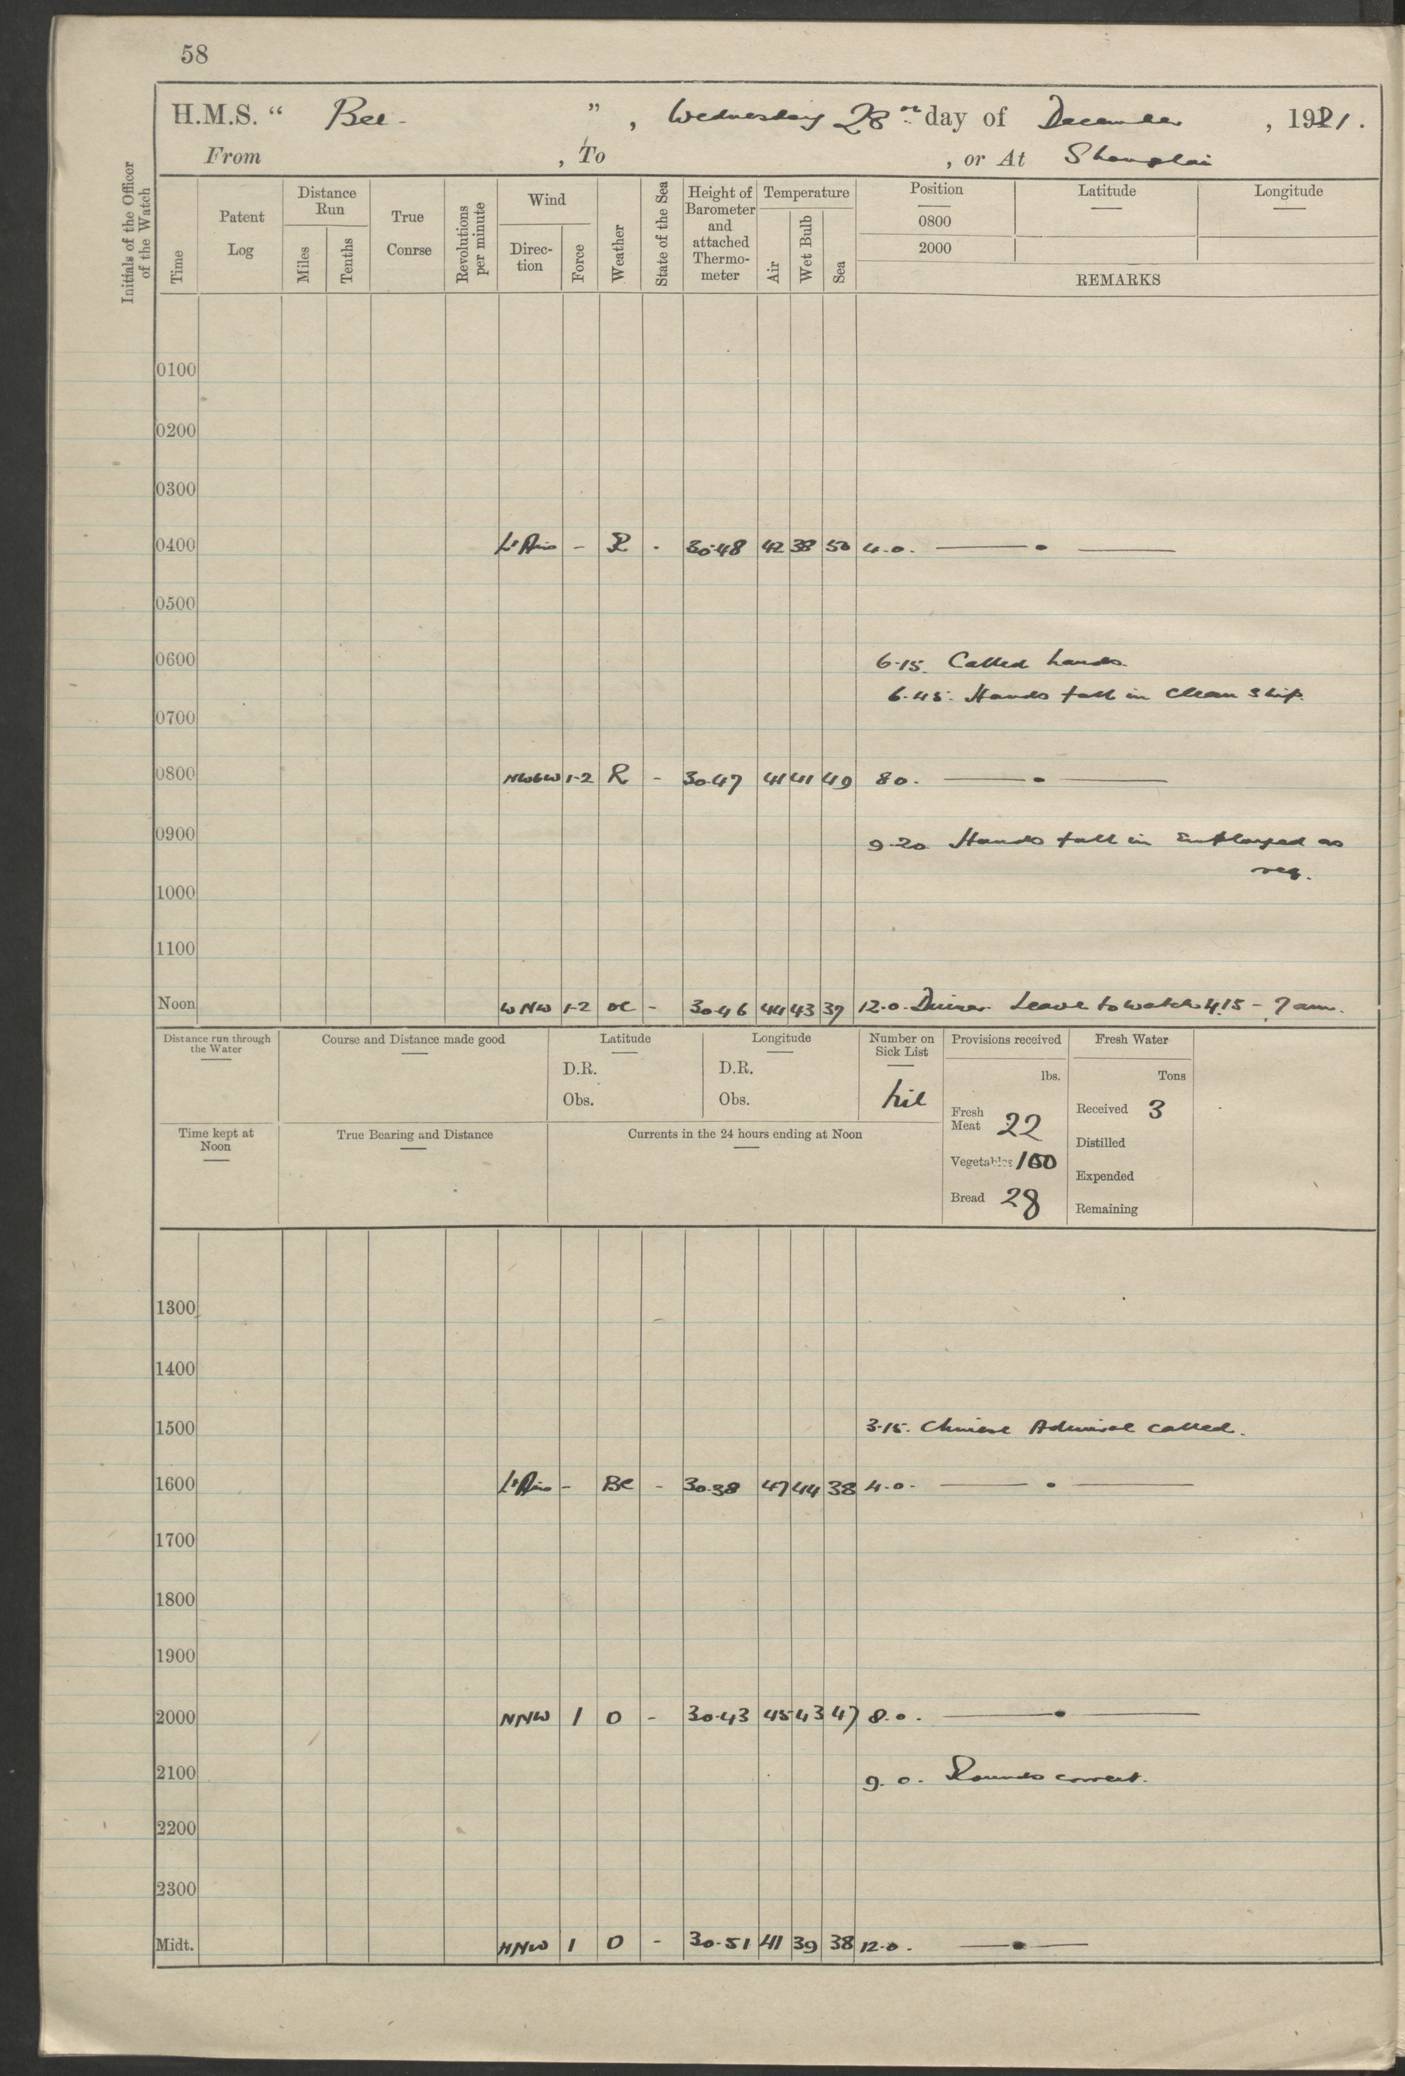 58
H.M.S. “ Bee ” , Wednesday 28th day of December , 1921.
From , To , or At Shanghai
Initials of the Officer of the Watch
Time
Patent Log
Distance Run
Miles
Tenths
True Conrse
Revolutions per minute
Wind
Direc-tion
Force
Weather
State of the Sea
Height of Barometer and attached Thermo-meter
Temperature
Air
Wet Bulb
Sea
Position Latitude Longitude
0800
2000
REMARKS
0100
0200
0300
0400 Lt Airs - R - 30.48 42 38 50 4.0.
0500
0600 6.15. Called hands.
6.45. Hands fall in clean ship.
0700
0800 NWbW 1-2 R - 30.47 41 41 49 8.0.
0900 9.20 Hands fall in Employed as
req.
1000
1100
Noon WNW 1-2 oc - 30.46 44 43 37 12.0. Dinner. Leave to watch 4.15 - 7 am.
Distance run through the Water
Course and Distance made good
Latitude
D.R.
Obs.
Longitude
D.R.
Obs.
Number on Sick List
Nil
Provisions received
lbs.
Fresh Meat 22
Vegetables 100
Bread 28
Fresh Water
Tons
Received 3
Distilled
Expended
Remaining
Time kept at Noon
True Bearing and Distance
Currents in the 24 hours ending at Noon
1300
1400
1500 3.15. Chinese Admiral called.
1600 Lt Airs - Bc - 30.38 47 44 38 4.0.
1700
1800
1900
2000 NNW 1 O - 30.43 45 43 47 8.0.
2100 9.0. Rounds correct.
2200
2300
Midt. NNW 1 O - 30.51 41 39 38 12.0.